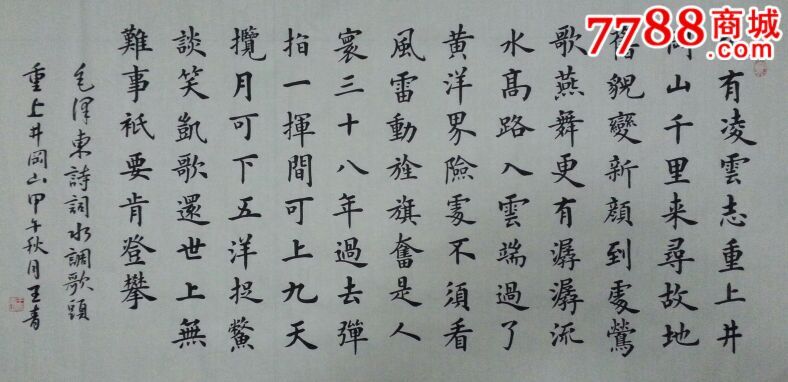 7788商城
有凌雲志重上井
岡山千里来尋故地
舊貌變新顔到處鶯
歌燕舞更有潺潺流
水高路入雲端過了
黄洋界險處不須看
風雷動旌旗奮是人
寰三十八年過去彈
指一揮間可上九天
攬月可下五洋捉鱉
談笑凱歌還世上無
難事衹要肯登攀
毛澤東詩詞水調歌頭
重上井岡山甲午秋月王青